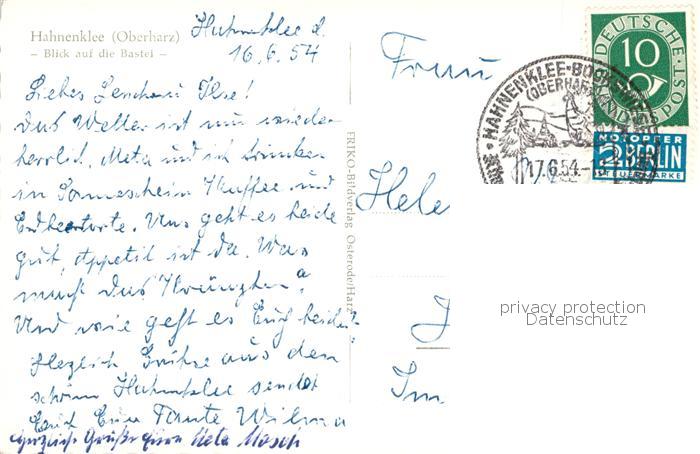 Hahnenklee (Oberharz)
– Blick auf die Bastei –
Hahnenklee d.
16.6.54
Liebes Ilse!
Das Wetter ist nun wieder
herrlich. Meta und ich trinken
in Sonnenschein Kaffee und
Erdbeertorte. Uns geht es beide
gut, Appetit ist da. Was
macht das Kränzchen?
Und wie geht es Euch beiden?
Herzlich Grüße aus dem
schönen Hahnenklee sendet
Euch Eure Tante Wilma
Herzliche Grüße Eure Meta Mosch
ERIKO-Bildverlag Osterode/Harz
Frau
Hele
J
Im
HAHNENKLEE-BOCKSWIESE
(OBERHARZ)
17.6.54.-1
DEUTSCHE POST
10
NOTOPFER
2 BERLIN
STEUERMARKE
privacy protection
Datenschutz